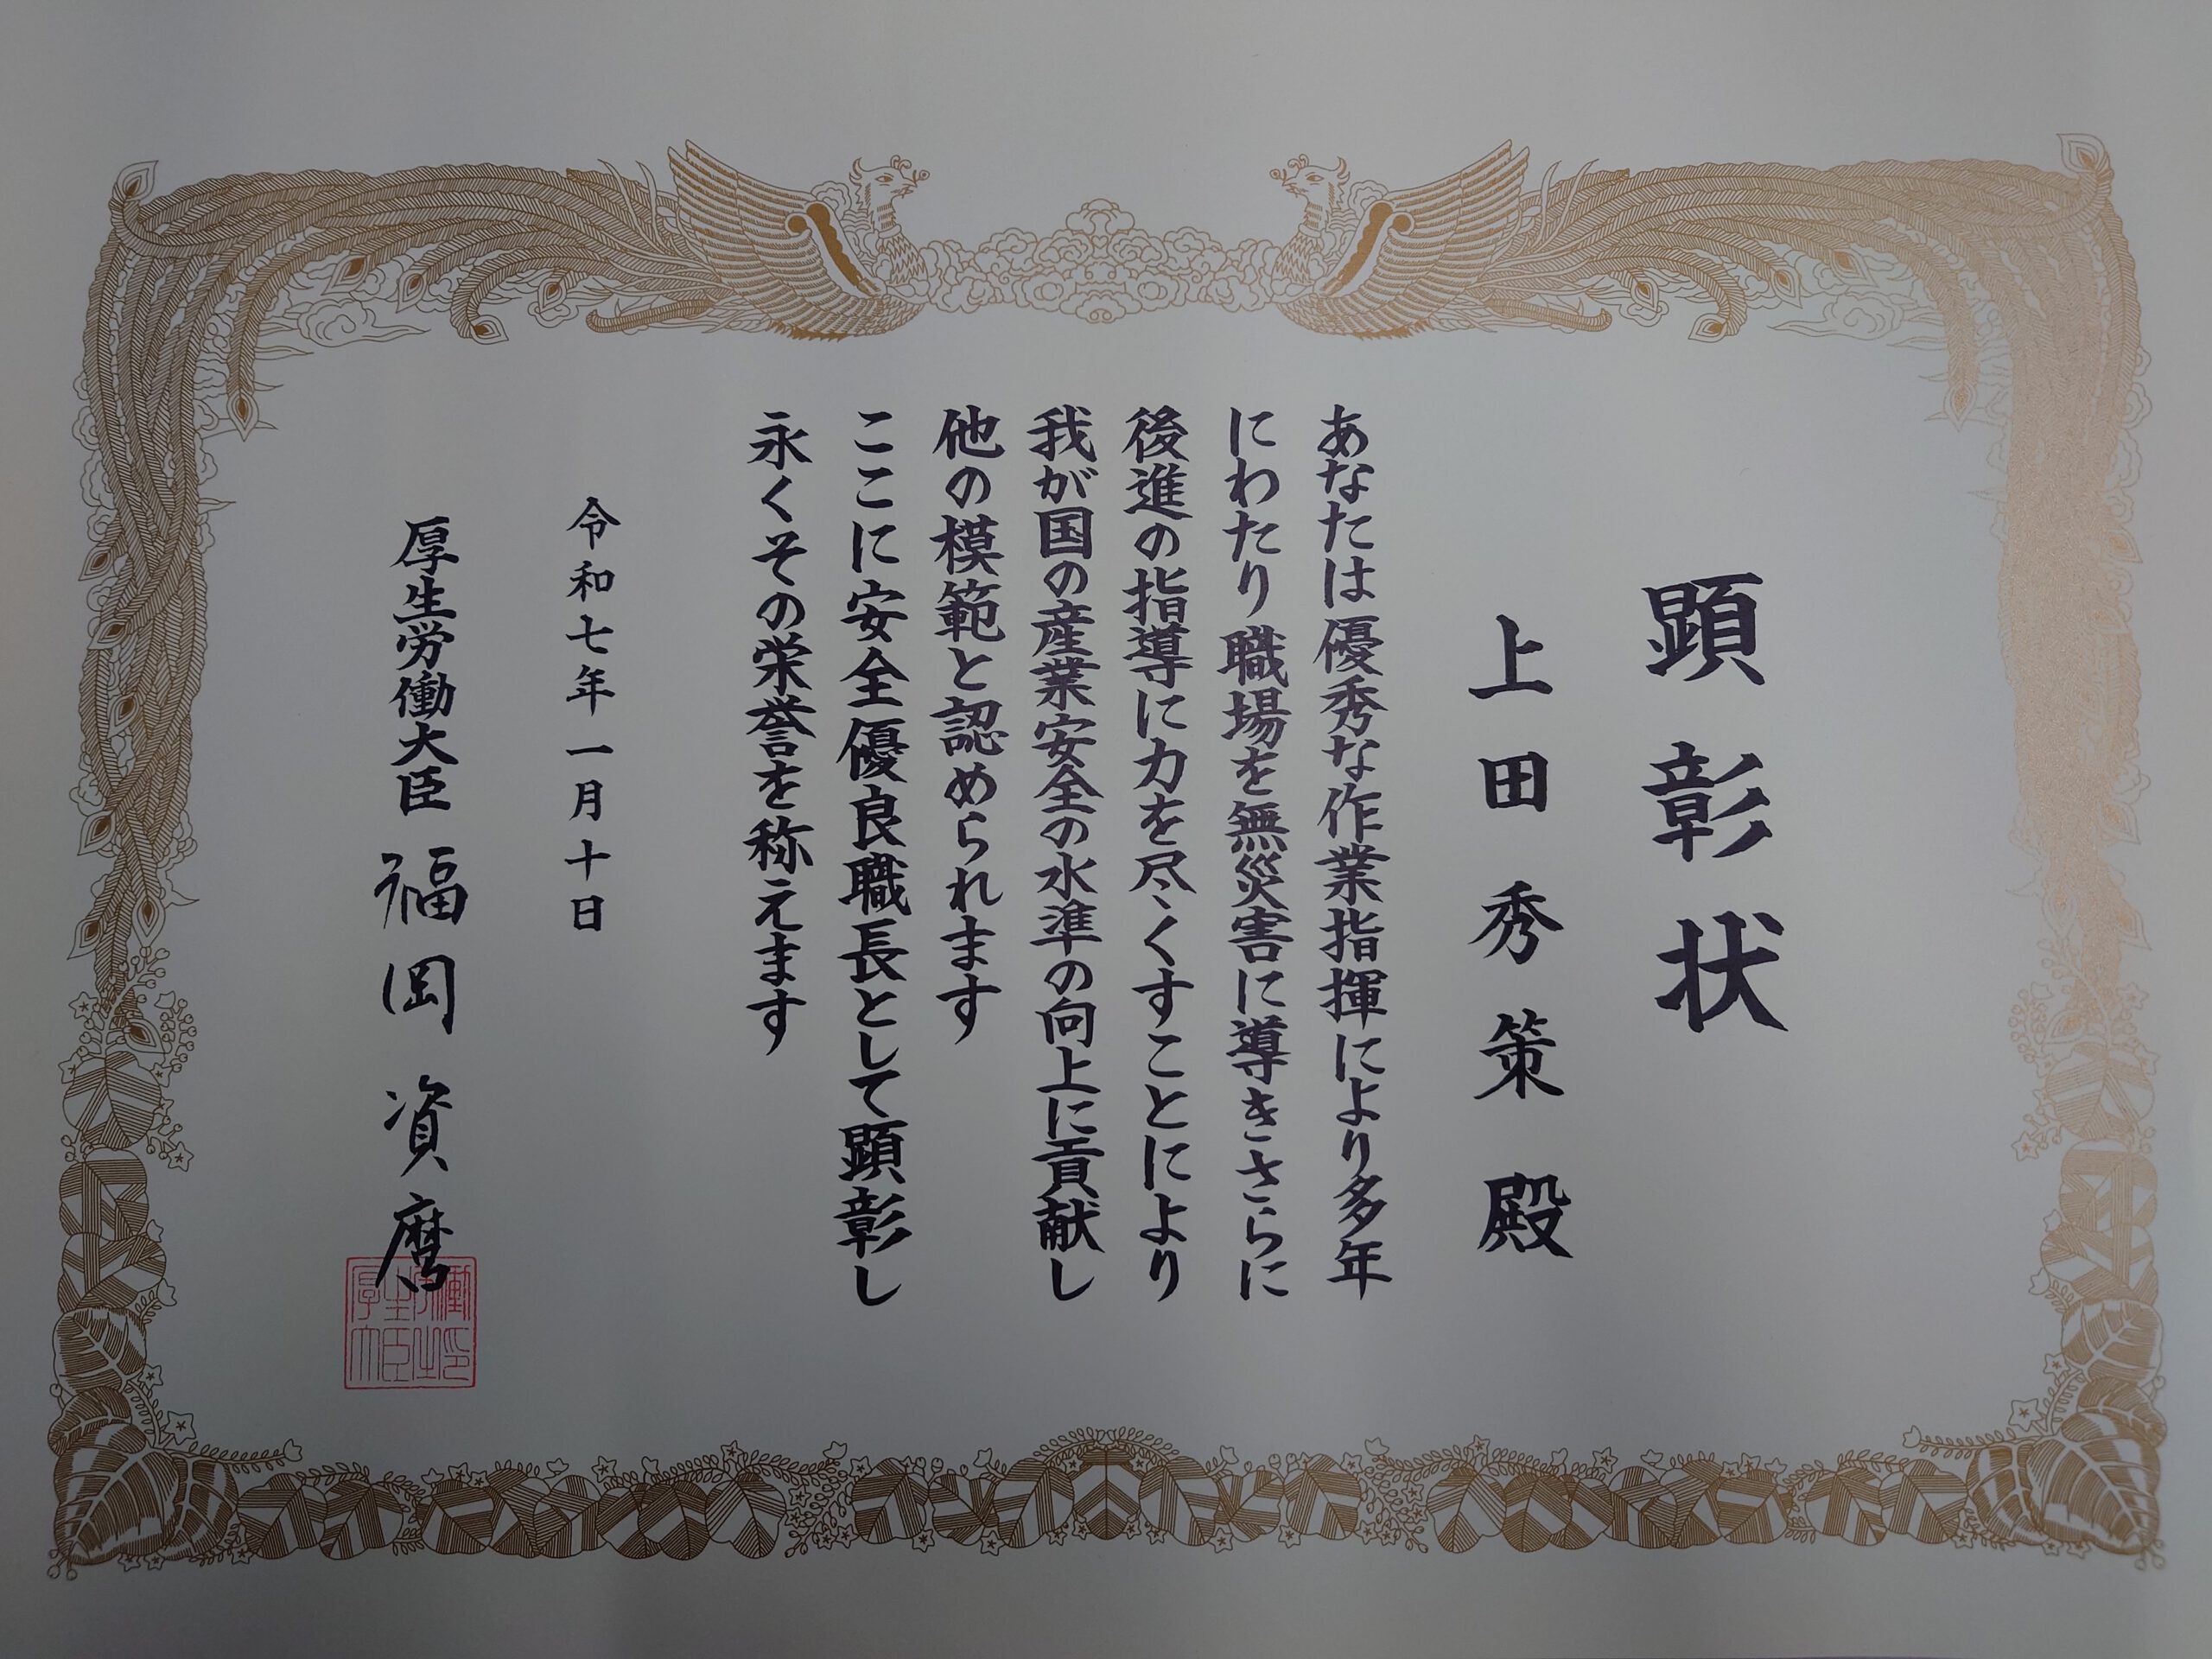 顕彰状
上田秀策殿
あなたは優秀な作業指揮により多年
にわたり職場を無災害に導きさらに
後進の指導に力を尽くすことにより
我が国の産業安全の水準の向上に貢献し
他の模範と認められます
ここに安全優良職長として顕彰し
永くその栄誉を称えます
令和七年一月十日
厚生労働大臣 福岡資麿
厚生労働大臣之印